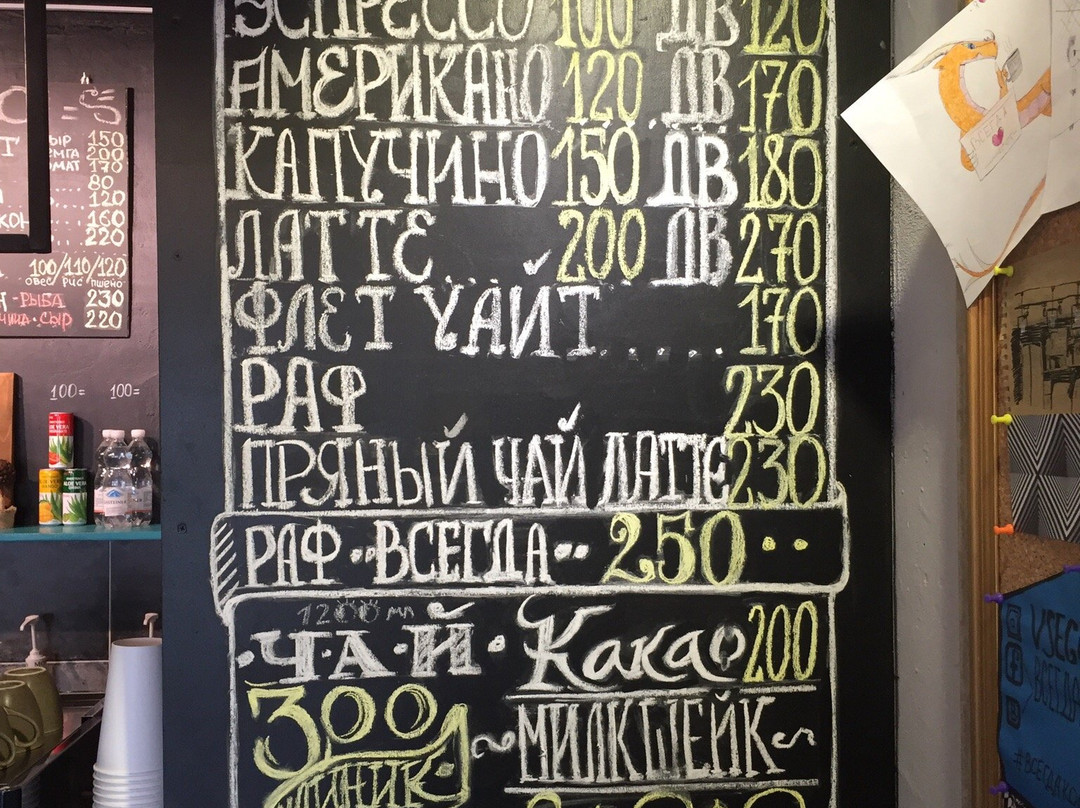 ЭСПРЕССО 100 ДВ 120
АМЕРИКАНО 120 ДВ 170
КАПУЧИНО 150 ДВ 180
ЛАТТЕ 200 ДВ 270
ФЛЕТ УАЙТ..... 170
РАФ 230
ПРЯНЫЙ ЧАЙ ЛАТТЕ 230
РАФ ВСЕГДА 250
1200 мл
ЧАЙ
300
Какао 200
МИЛКШЕЙК
150
200
170
80
120
160
220
100/110/120
овес/рис/пшено
РЫБА 230
СЫР 220
100= 100=
VSEG